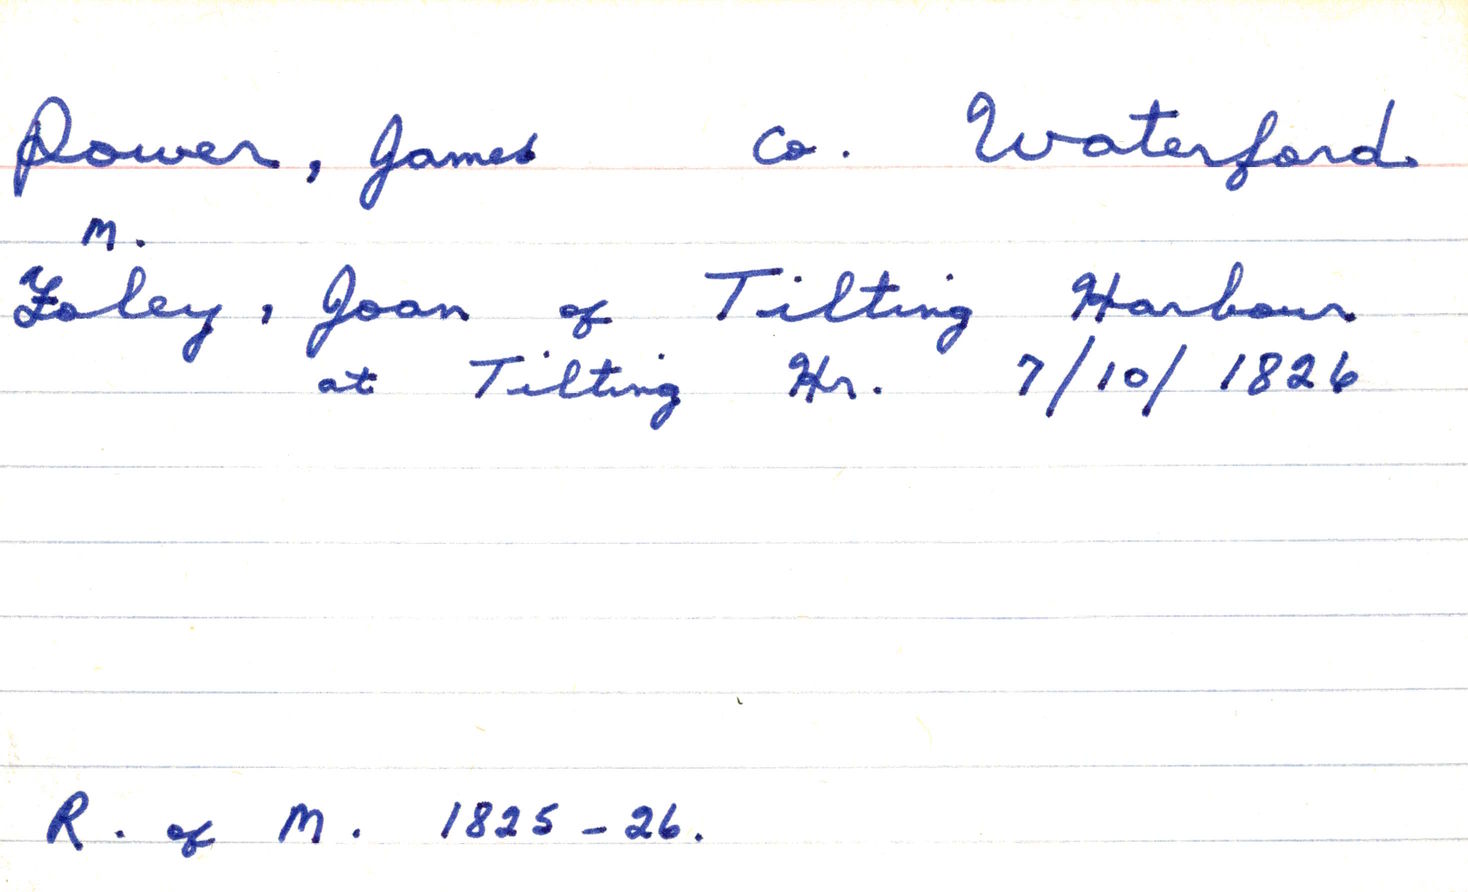 Power, James Co. Waterford
m.
Foley, Joan of Tilting Harbour
at Tilting Hr. 7/10/1826
R. of M. 1825-26.